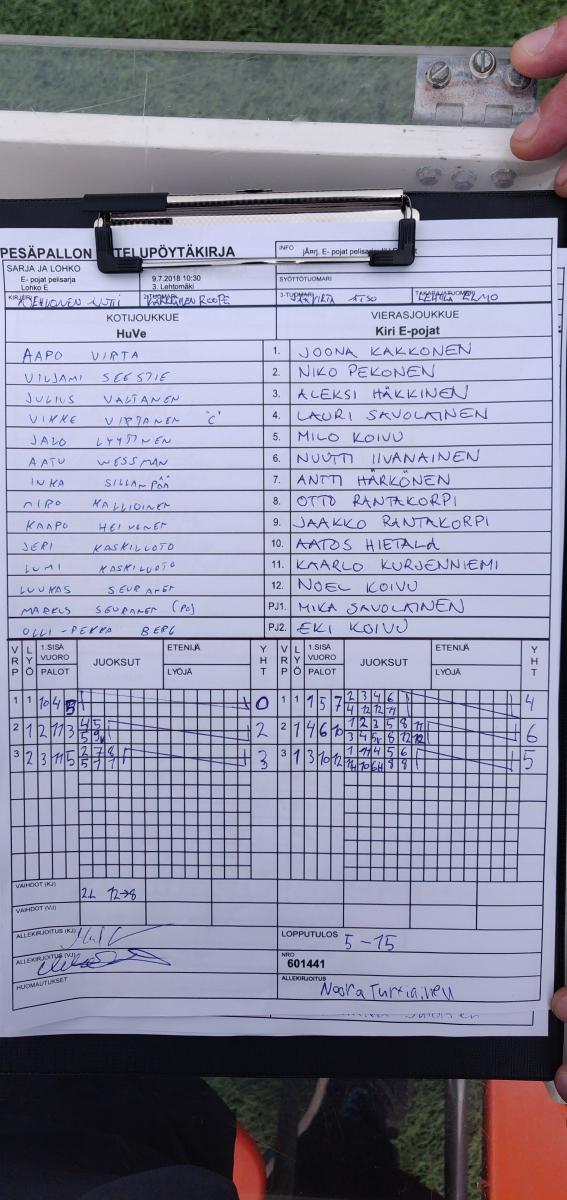 PESÄPALLON OTTELUPÖYTÄKIRJA
INFO
SARJA JA LOHKO
E- pojat pelisarja
Lohko E
9.7.2018 10:30
3. Lehtomäki
SYÖTTÖTUOMARI
KIRJURI
2-TUOMARI ROOPE
3-TUOMARI ATSO
TAKARAJATUOMARI LEHTILÄ ELMO
KOTIJOUKKUE
HuVe
VIERASJOUKKUE
Kiri E-pojat
AAPO VIRTA 1. JOONA KAKKONEN
VILJAMI SEESTIE 2. NIKO PEKONEN
JULIUS VALTANEN 3. ALEKSI HÄKKINEN
VIRTANEN "C" 4. LAURI SAVOLAINEN
JALO LYYTINEN 5. MILO KOIVU
AATU WESSMAN 6. NUUTTI IIVANAINEN
INKA SILLANPÄÄ 7. ANTTI HÄRKÖNEN
MIRO KALLIOINEN 8. OTTO RANTAKORPI
KAAPO HEIVONEN 9. JAAKKO RANTAKORPI
JERI KASKILUOTO 10. AATOS HIETALA
LUMI KASKILUOTO 11. KAARLO KURJENNIEMI
LUUKAS SEURANEN 12. NOEL KOIVU
MARKUS SEURANEN (PO) PJ1. MIKA SAVOLAINEN
OLLI-PEKKA BERG PJ2. EKI KOIVU
VRP LYÖ 1.SISÄ VUORO PALOT JUOKSUT ETENIJÄ LYÖJÄ YHT VRP LYÖ 1.SISÄ VUORO PALOT JUOKSUT ETENIJÄ LYÖJÄ YHT
1 1 10 4 0 1 1 1 5 7 2 3 4 6 4
4 12 12 11
2 1 2 11 3 4 5 2 2 1 4 6 10 1 2 3 5 8 11 6
3 2 3 11 5 2 7 8 3 3 1 3 10 12 1 11 4 5 6 5
5 7 7
VAIHDOT (KJ) 2L 12→8
VAIHDOT (VJ)
ALLEKIRJOITUS (KJ)
LOPPUTULOS 5-15
ALLEKIRJOITUS (VJ)
NRO
601441
HUOMAUTUKSET
ALLEKIRJOITUS
Noora Turtiainen